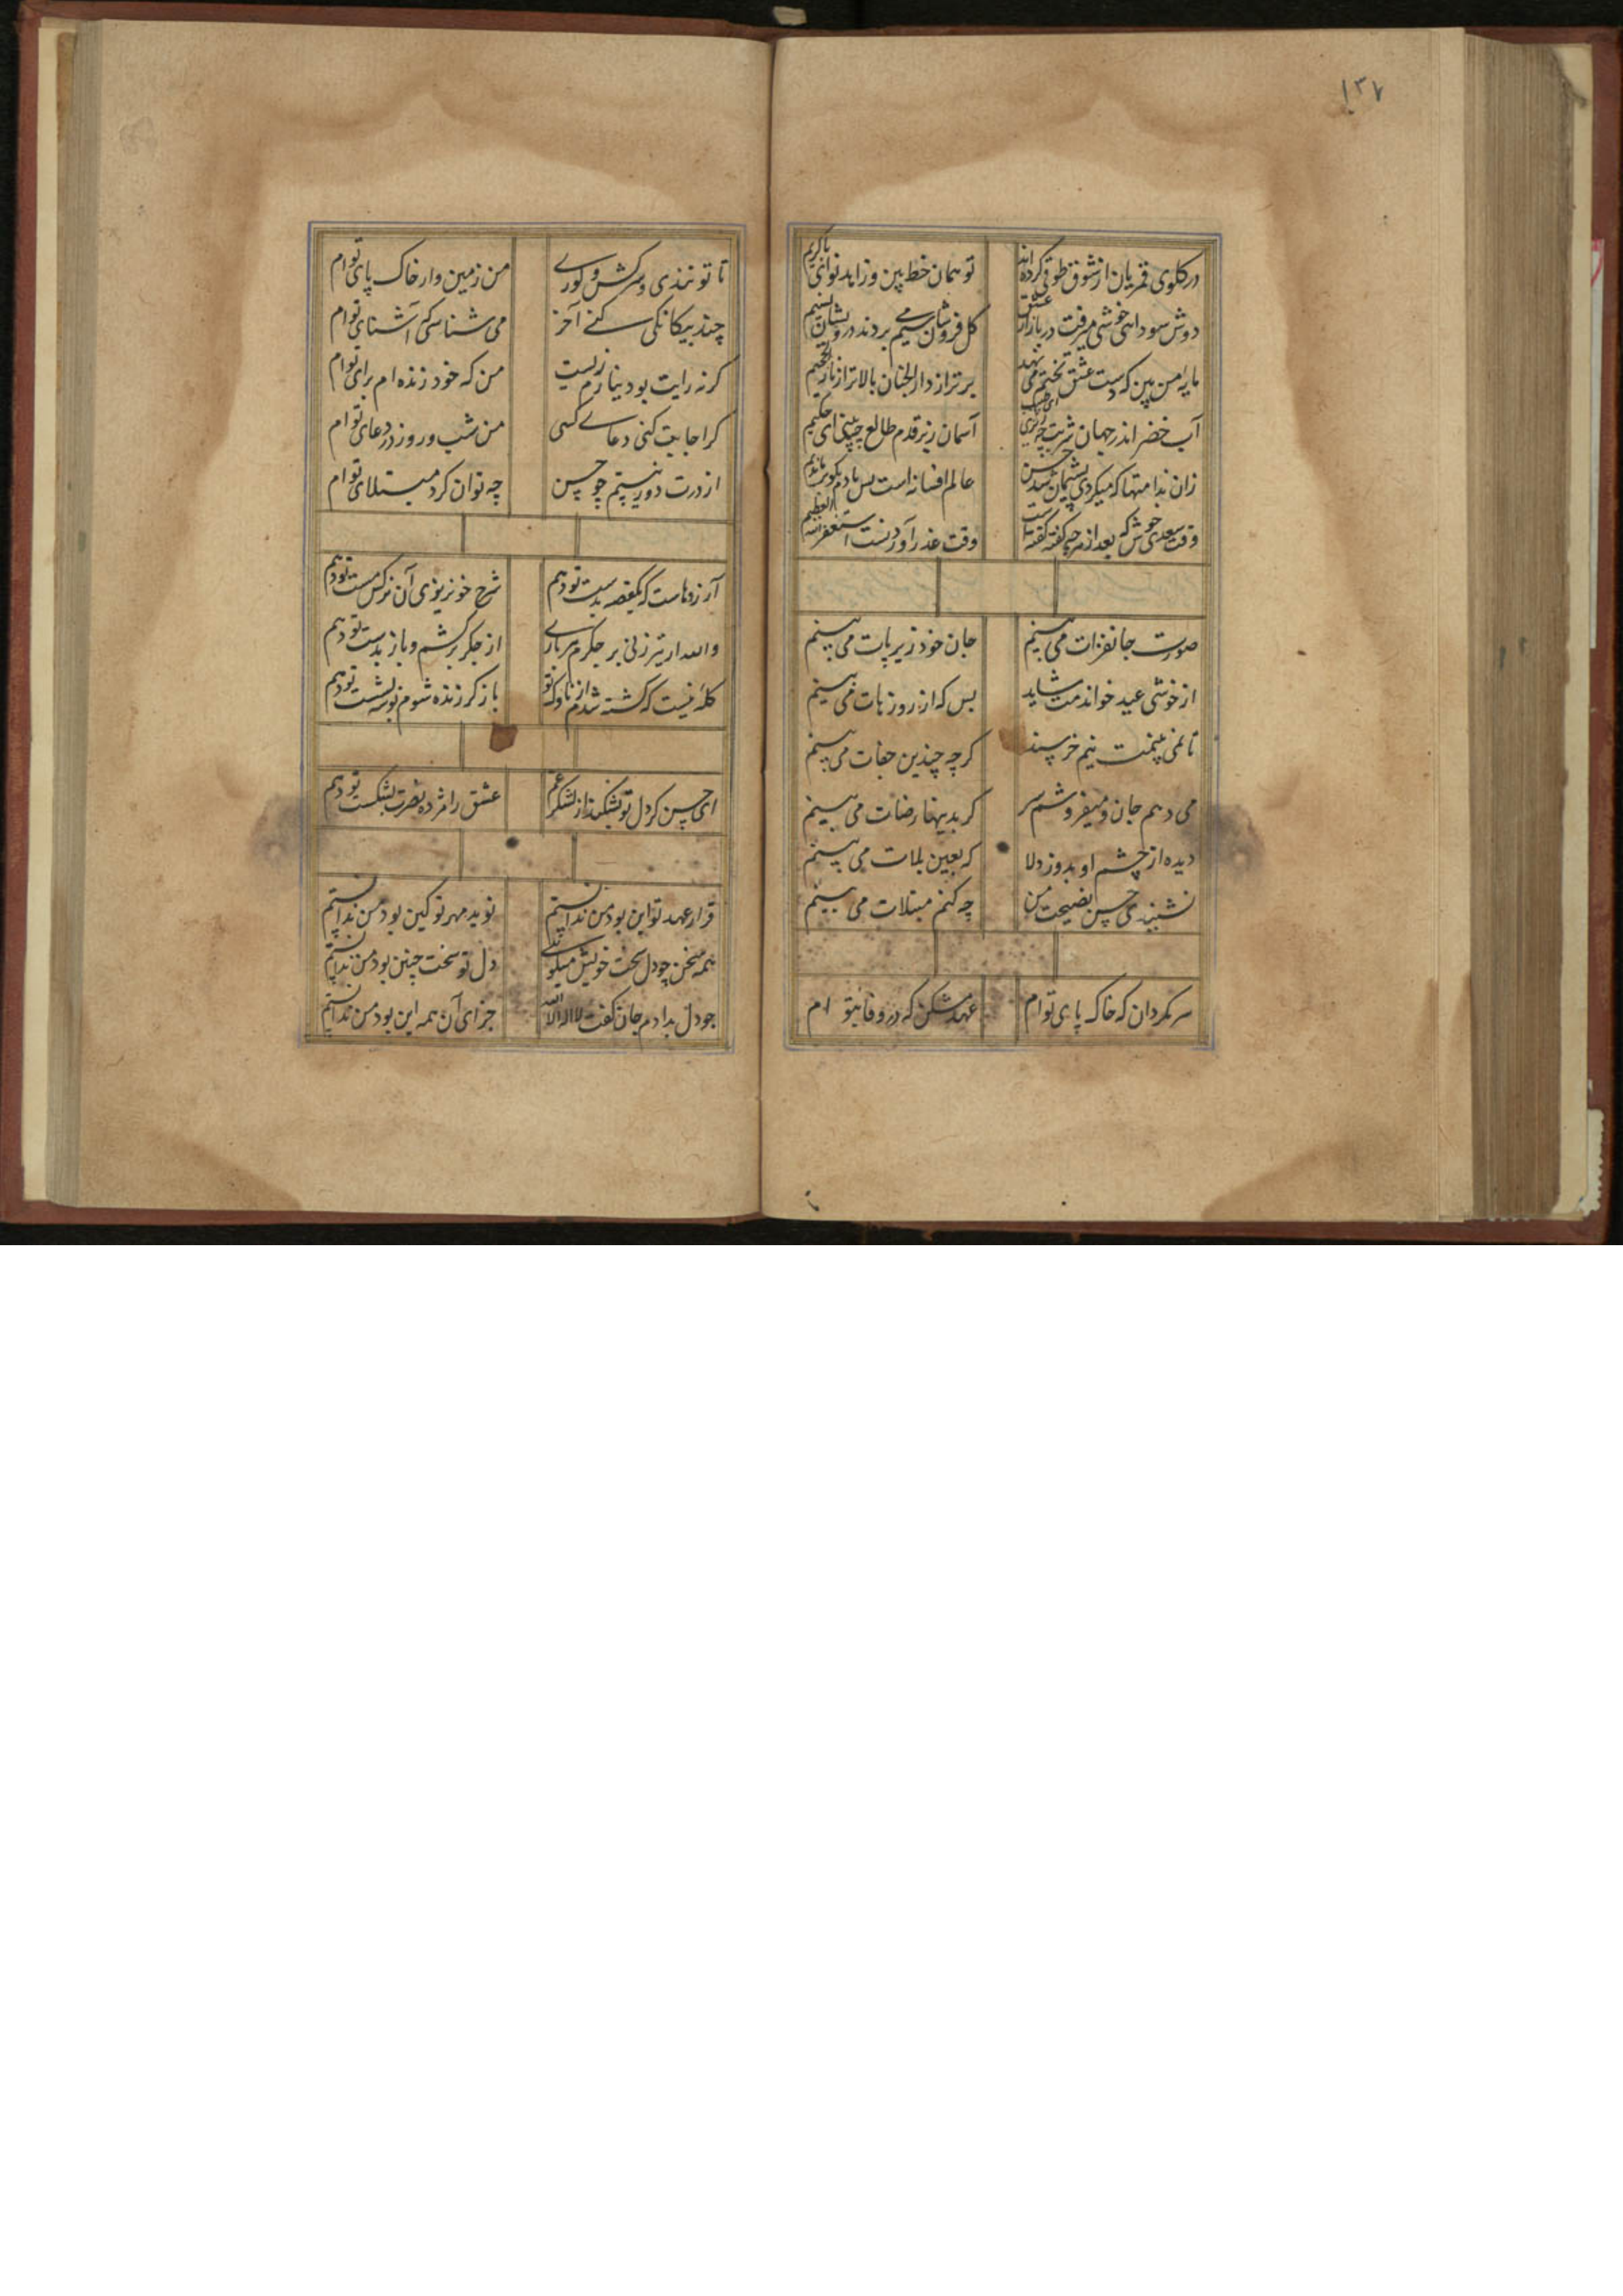 ۱۳۷
در گلوی قمریان از شوق طوقی کرده اند تو همان خط بین وزاید نوای یا کریم
دوش سودای خوشی میرفت در بازار عشق گل فروشان سیم می بردند درویشان نسیم
پایه من بین که دست عشق تختم می نهد برتر از دار الجنان بالاتر از نار الجحیم
آب خضر اندر جهان شربت چه ای طبیب آسمان زیر قدم طالع چه بینی ای حکیم
زان ندامتها که میکردی پشیمان شد حسن عالم افسانه است بس با دم
وقت سعدی خوش که بعد از هرچه گفته گفته است وقت عذر آوردنست استغفر الله العظیم
صورت جانفزات می بینم جان خود زیر پات می بینم
از خوشی عید خواندمت شاید بس که از روزهات می بینم
تا غمی بینمت نیم خرسند گرچه چندین جفات می بینم
می دهم جان و میفروشم سر گر بدینها رضات می بینم
دیده از چشم او بدوز دلا که بعین بلات می بینم
نشنیدی حسن نصیحت من چه کنم مبتلات می بینم
سر مگردان که خاک پای توام عهد مشکن که در وفای تو ام
تا تو تندی و سرکش و من زمین وار خاک پای توام
چند بیگانگی کنی آخر می شناسی که آشنای توام
گر نه رایت بود نیارم زیست من که خود زنده ام برای توام
گر اجابت کنی دعای کسی من شب و روز در دعای توام
از درت دور نیستم چو حسن چه توان کرد مبتلای توام
آرزوهاست که یکقصه بدست تو دهم شرح خونریزی آن نرگس مست تو دهم
والله ار تیر زنی بر جگرم هر باری از جگر برکشم و باز بدست تو دهم
گله نیست که کشته شدم از ناوک تو باز گر زنده شوم بوسه بشست تو دهم
ای حسن گر دل تو بشکند از لشکر غم عشق را مژده نصرت بشکست تو دهم
قرار عهد تو این بود من ندانستم نوید مهر تو کین بود من ندانستم
همه سخن چو دل سخت خویش میگوئی دل تو سخت چنین بود من ندانستم
چو دل بدادم جان گفت لا اله الا الله جزای آن همه این بود من ندانستم